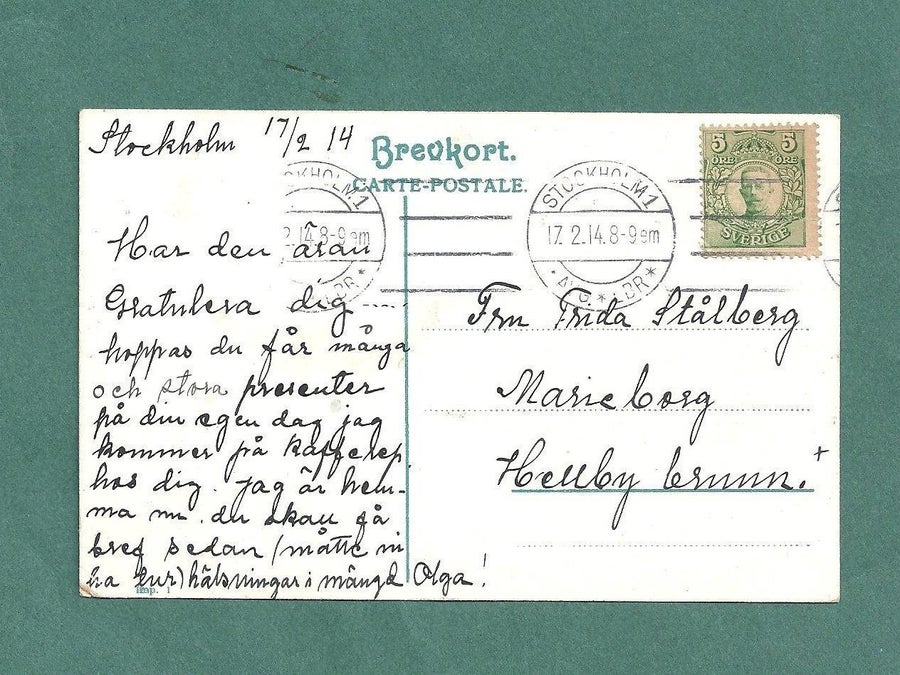 Stockholm 17/2 14
Brevkort.
CARTE-POSTALE.
STOCKHOLM.1
2.14.8-9em
BR*
STOCKHOLM 1
17.2.14.8-9em
*BR*
5 5
ÖRE ÖRE
SVERIGE
Har den äran
Gratulera dig ----
hoppas du får många
och stora presenter
på din egen dag jag
kommer på kafferep
hos dig. jag är hem-
ma nu. du skall få
bref sedan (måtte ni
ha tur) hälsningar i mängd Olga!
Imp. 1
Fru Frida Stålberg
Marieborg
Hellby brunn.+